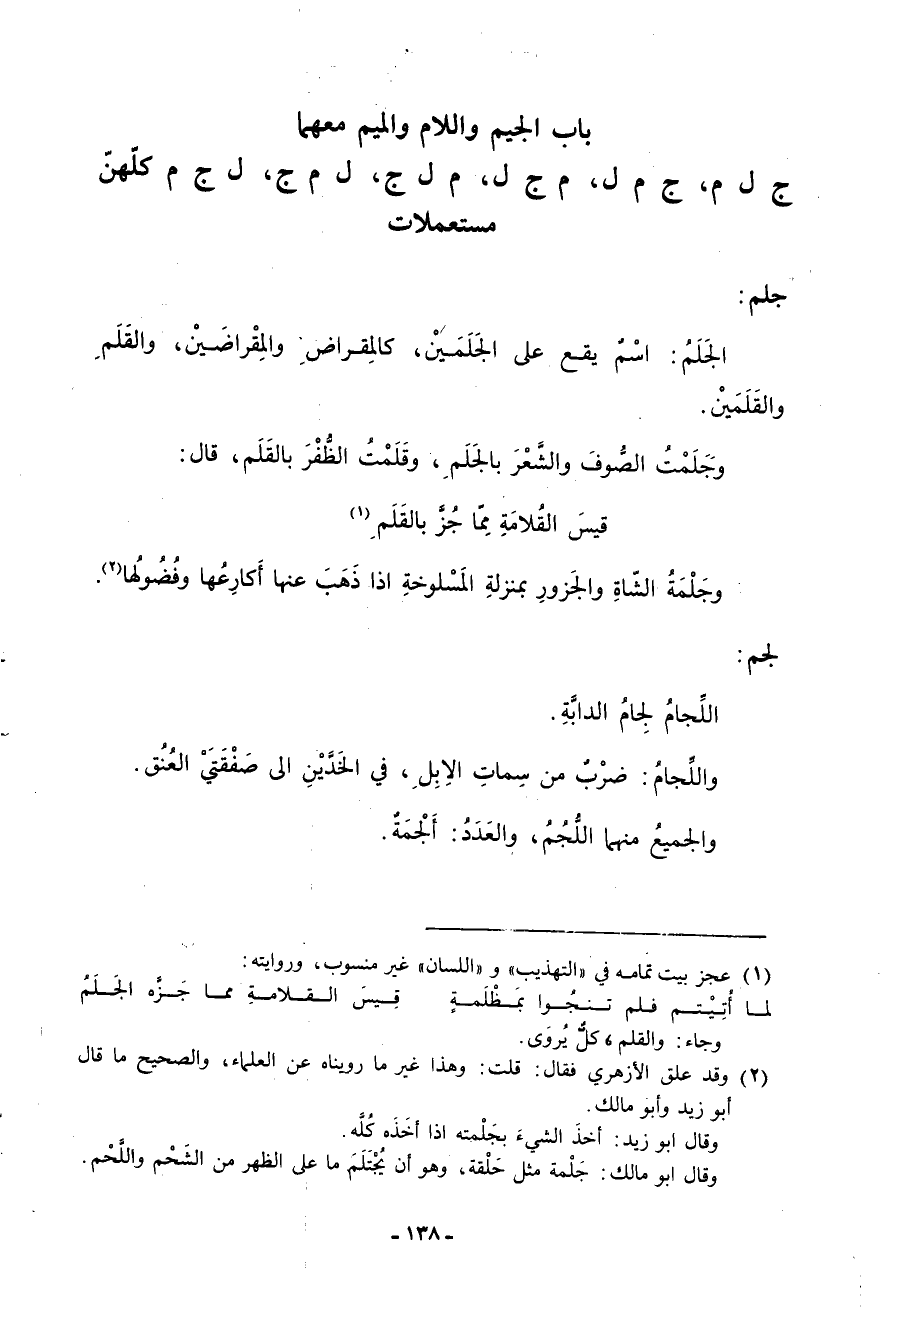 باب الجيم واللام والميم معهما
ج ل م، ج م ل، م ج ل، م ل ج، ل م ج، ل ج م كلّهنّ
مستعملات
جلم:
الجَلَمُ: اسْمٌ يقـع على الجَلَمَـيْن، كالمِقـراضِ والمِقْراضَـيْن، والقَلَمِ
والقَلَمَيْن.
وجَلَمْتُ الصُّوفَ والشَّعْرَ بالجَلَمِ، وقَلَمْتُ الظُّفْرَ بالقَلَم، قال:
قيسَ القُلامَةِ مِمّا جُزَّ بالقَلَمِ(١)
وجَلْمَةُ الشّاةِ والجَزورِ بمنزلةِ المَسْلوخةِ اذا ذَهَبَ عنها أَكارِعُها وفُضُولُها(٢).
لجم:
اللِّجامُ لِجامُ الدابَّةِ.
واللِّجامُ: ضرْبٌ من سِماتِ الإِبِلِ، في الخَدَّيْنِ الى صَفْقَتَيْ العُنُق.
والجميعُ منهما اللُّجُمُ، والعَدَدُ: أَلْجِمَةٌ.
(١) عجز بيت تمامـه في «التهذيب» و «اللسان» غير منسوب، وروايته:
لمـا أُتِيْـتـم فلـم تـنـجُـوا بمَـظْلَمـةٍ قِـيسَ القـلامـةِ ممـا جَـزَّه الجَـلَـمُ
وجاء: والقلم، كلٌّ يُروَى.
(٢) وقد علق الأزهري فقال: قلت: وهذا غير ما رويناه عن العلماء، والصحيح ما قال
أبو زيد وأبو مالك.
وقال ابو زيد: أخذ الشيءَ بجَلْمته اذا أخَذَه كُلَّه.
وقال ابو مالك: جَلْمة مثل حَلْقة، وهو أن يُجْتَلَمَ ما على الظهر من الشَحْم واللَّحْم.
- ١٣٨ -